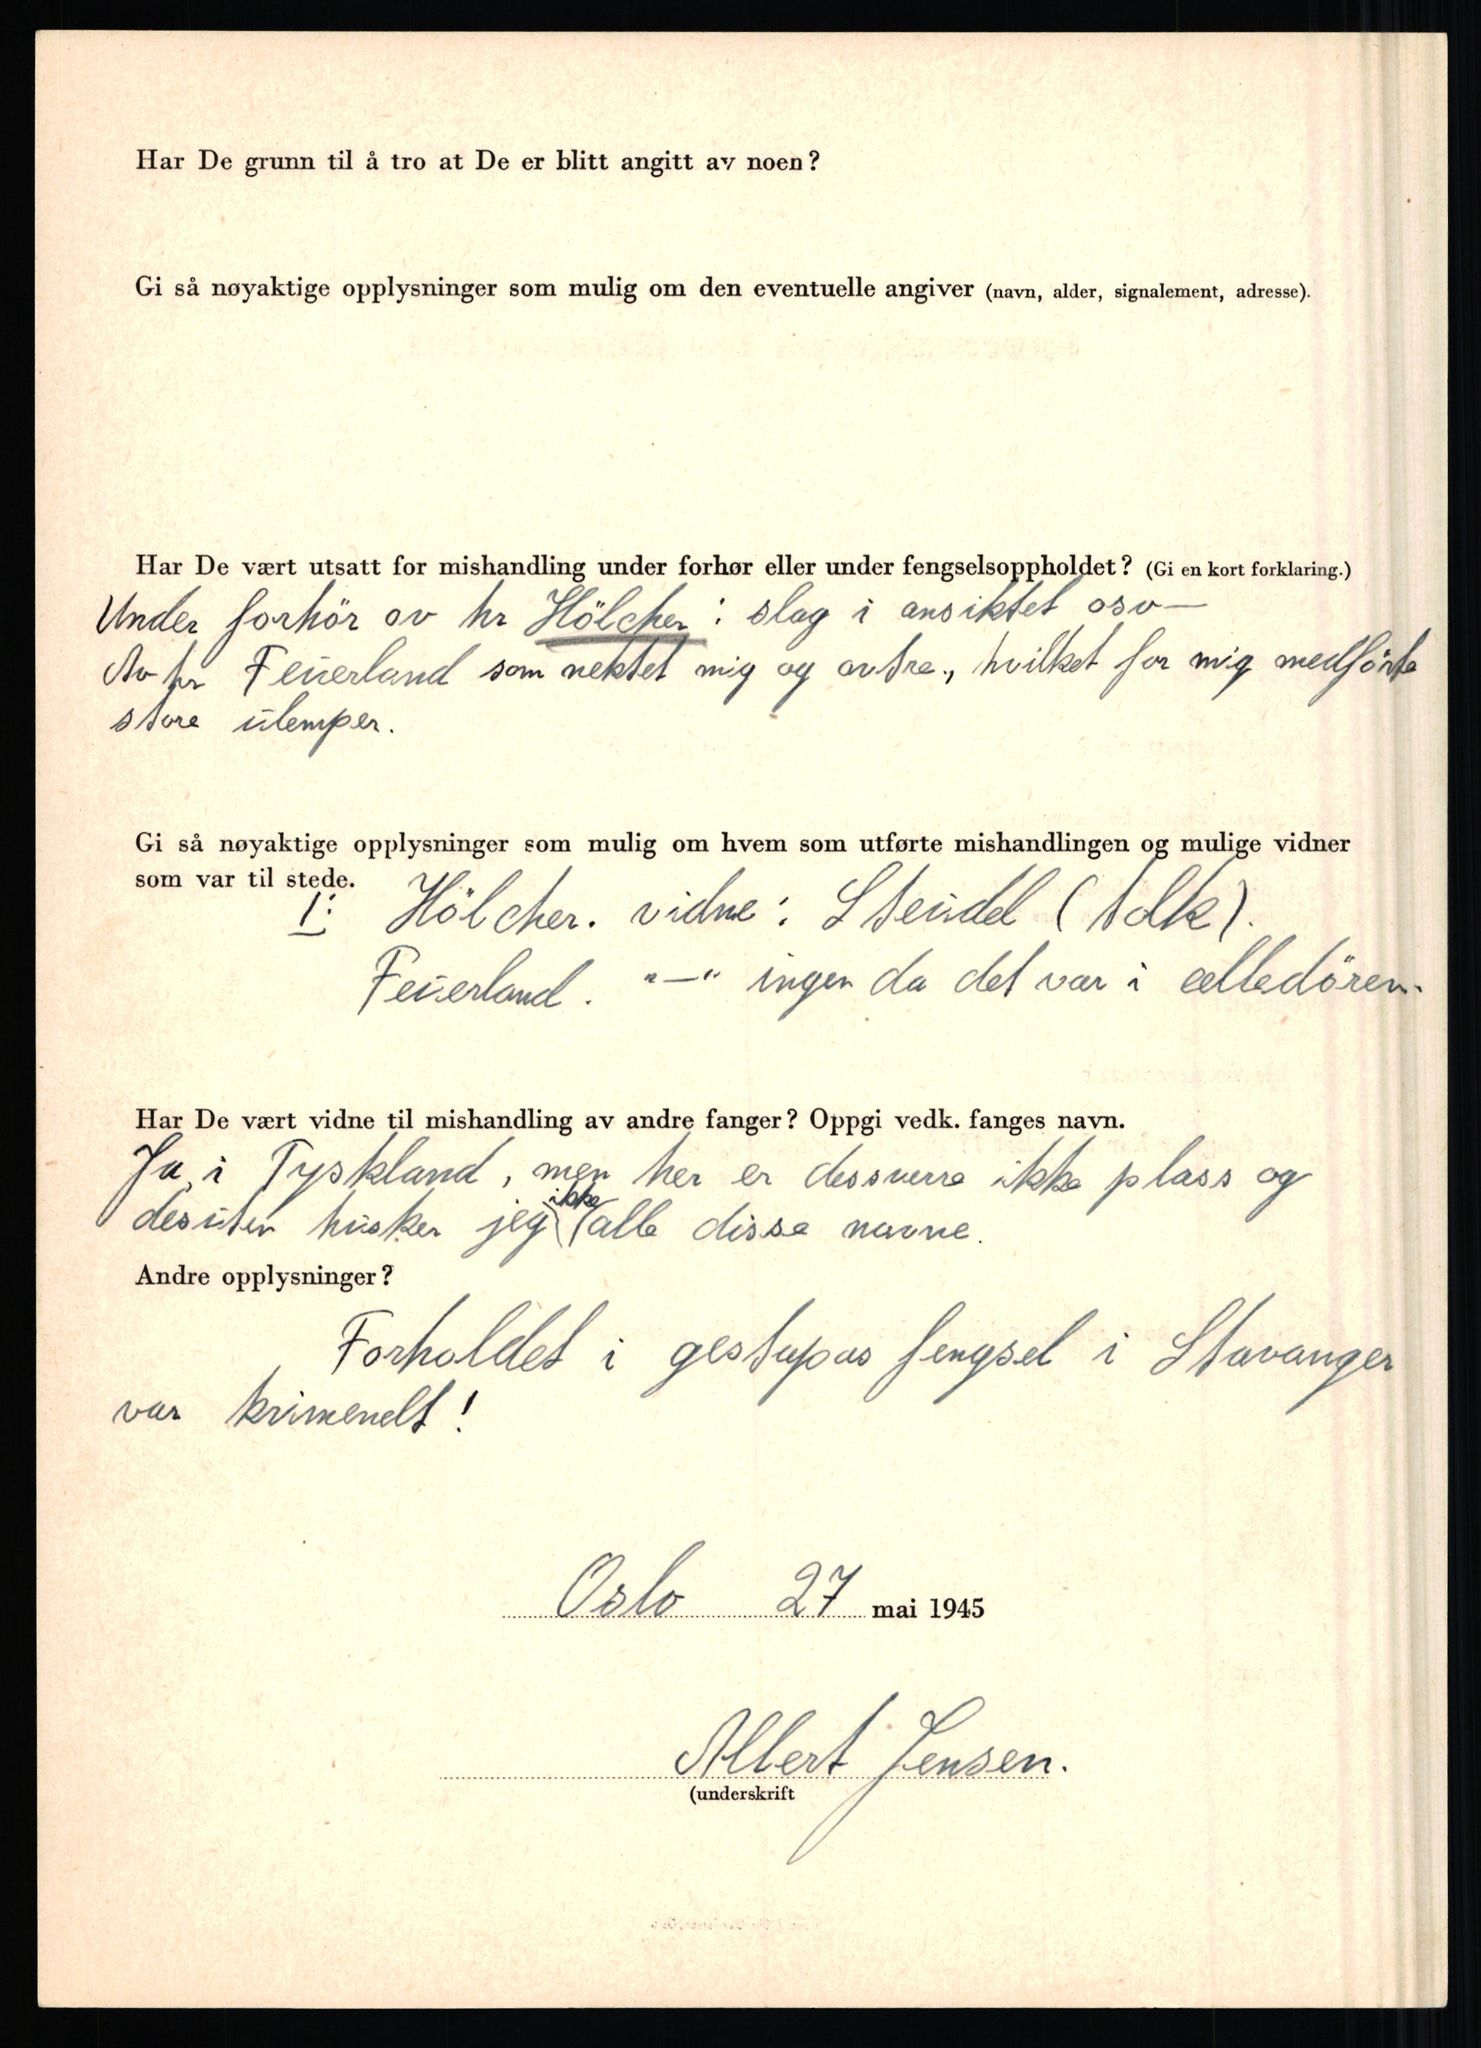 Har De grunn til å tro at De er blitt angitt av noen?
Gi så nøyaktige opplysninger som mulig om den eventuelle angiver (navn, alder, signalement, adresse).
Har De vært utsatt for mishandling under forhør eller under fengselsoppholdet? (Gi en kort forklaring.)
Under forhör av hr Hölcher: slag i ansiktet osv—
Av hr Feuerland som nektet mig og avtre., hvilket for mig medförte
store ulemper.
Gi så nøyaktige opplysninger som mulig om hvem som utførte mishandlingen og mulige vidner
som var til stede.
1: Hölcher. vidne: Steudel (tolk).
Feuerland. "—" ingen da det var i celledören.
Har De vært vidne til mishandling av andre fanger? Oppgi vedk. fanges navn.
Ja, i Tyskland, men her er dessverre ikke plass og
desuten husker jeg ikke alle disse navne.
Andre opplysninger?
Forholdet i gestapos fengsel i Stavanger
var krimenelt!
Oslo 27 mai 1945
Albert Jensen.
(underskrift